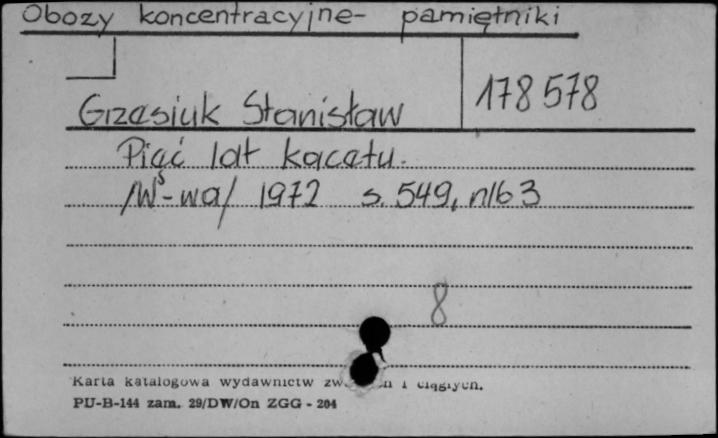 Obozy koncentracyjne - pamiętniki
178578
Grzesiuk Stanisław
Pięć lat kacetu.
/W-wa/ 1972 s. 549, nlb 3
8
Karta katalogowa wydawnictw i ciągłych.
PU-B-144 zam. 29/DW/On ZGG - 204